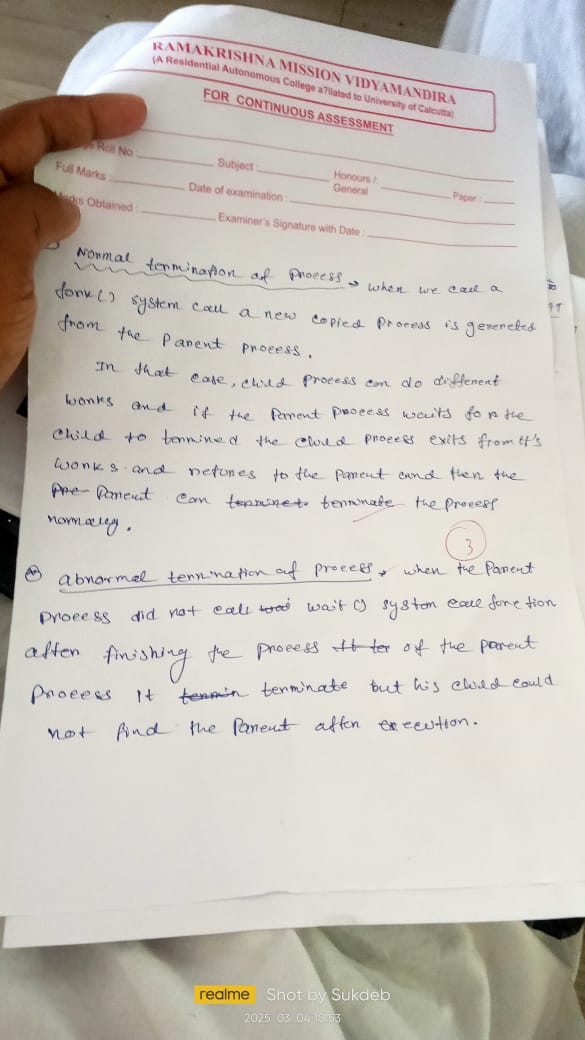 RAMAKRISHNA MISSION VIDYAMANDIRA
(A Residential Autonomous College a?liated to University of Calcutta)
FOR CONTINUOUS ASSESSMENT
Roll No :
Subject :
Honours /
General
Paper :
Full Marks :
Date of examination :
Marks Obtained :
Examiner's Signature with Date :
Normal termination of process → when we call a
fork() system call a new copied process is genereted
from the parent process.
In that case, child process can do different
works and if the parent process waits for the
child to termined the child process exits from it's
works and retones to the parent and then the
Pre- Parent can termine to terminate the process
normalley.
3
abnormal termination of process → when the Parent
process did not call wait() system call fonction
after finishing the process of the parent
process it termin terminate but his child could
not find the Parent after execution.
realme Shot by Sukdeb
2025.03.04 16:53